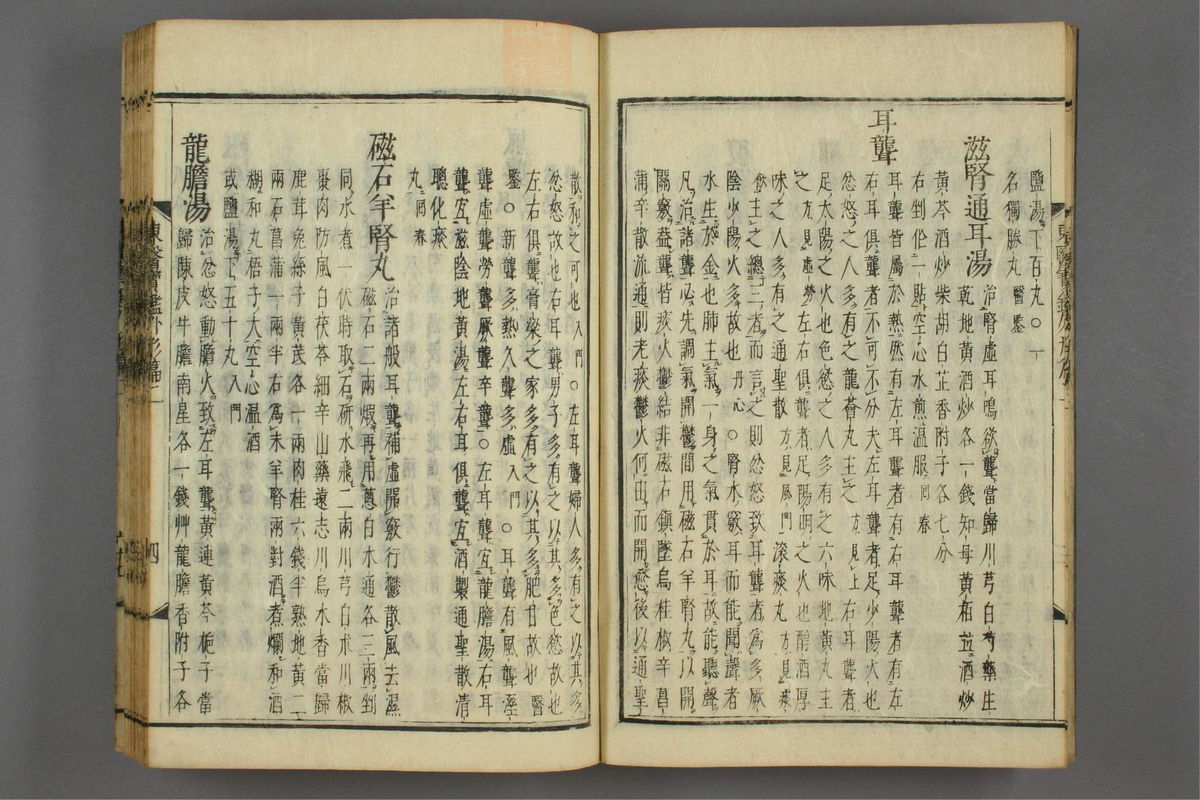 鹽湯下百丸○一
名獨勝丸 醫鑒
滋腎通耳湯 治腎虛耳鳴欲聾當歸川芎白芍藥生
乾地黃酒炒各一錢知母黃栢並酒炒
黃芩酒炒柴胡白芷香附子各七分
右剉作一貼空心水煎溫服 回春
耳聾 耳聾皆屬於熱然有左耳聾者有右耳聾者有左
右耳俱聾者不可不分夫左耳聾者足少陽火也
忿怒之人多有之龍薈丸主之 方見上 右耳聾者
足太陽之火也色慾之人多有之六味地黃丸主
之 方見虛勞 左右俱聾者足陽明之火也醇酒厚
味之人多有之通聖散 方見風門 滾痰丸 方見痰
飮 主之總三者而言之則忿怒致耳聾者爲多厥
陰少陽火多故也 丹心 ○腎水竅耳而能聞聲者
水生於金也肺主氣一身之氣貫於耳故能聽聲
凡治諸聾必先調氣開鬱間用磁石羊腎丸以開
關竅盖聾皆痰火鬱結非磁石鎭墜烏桂椒辛菖
蒲辛散流通則老痰鬱火何由而開愈後以通聖
散和之可也 入門 ○左耳聾婦人多有之以其多
忿怒故也右耳聾男子多有之以其多色慾故也
左右俱聾膏粱之家多有之以其多肥甘故也 醫
鑒 ○新聾多熱久聾多虛 入門 ○耳聾有風聾溼
聾虛聾勞聾厥聾卒聾○左耳聾宜龍膽湯右耳
聾宜滋陰地黃湯左右耳俱聾宜酒製通聖散淸
聰化痰
丸 回春
磁石羊腎丸 治諸般耳聾補虛開竅行鬱散風去濕
磁石三兩煆再用蔥白木通各三兩剉
同水煮一伏時取石硏水飛二兩川芎白朮川椒
棗肉防風白茯苓細辛山藥遠志川烏木香當歸
鹿茸兔絲子黃芪各一兩肉桂六錢半熟地黃二
兩石菖蒲一兩半右爲末羊腎兩對酒煮爛和酒
糊和丸梧子大空心溫酒
或鹽湯下五十丸 入門
龍膽湯 治忿怒動膽火致左耳聾黃連黃芩梔子當
歸陳皮牛膽南星各一錢艸龍膽香附子各
東醫寶鑑外形篇二
四